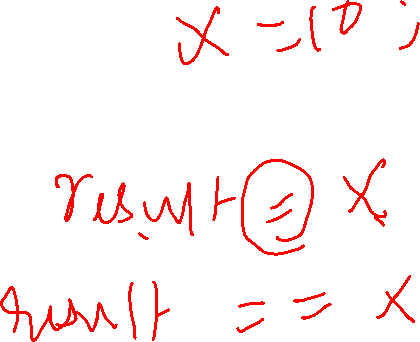 x = 10;
result = x
result == x